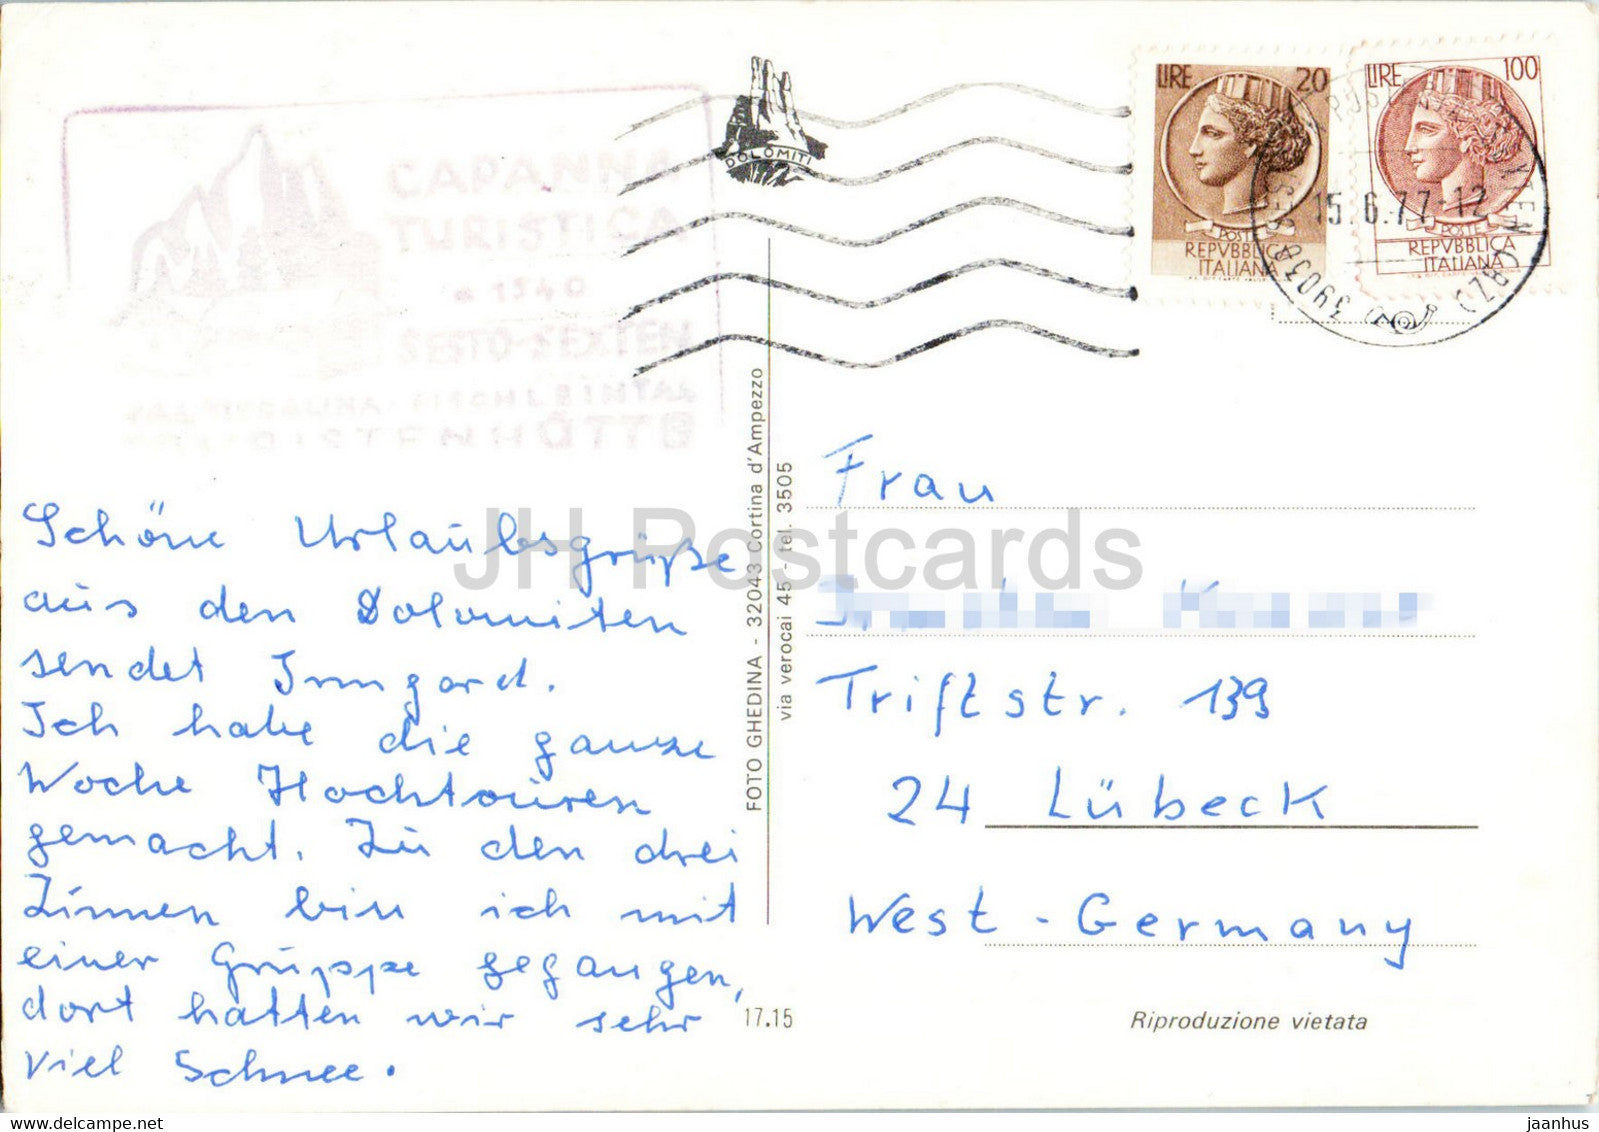 CAPANNA
TURISTICA
1340
SESTO-SEXTEN
DOLOMITI
LIRE 20
POSTE
REPVBBLICA
ITALIANA
LIRE 100
POSTE
REPVBBLICA
ITALIANA
15.6.77-12
39038
(BZ)
Schöne Urlaubsgrüße
aus den Dolomiten
sendet Irmgard.
Ich habe die ganze
Woche Hochtouren
gemacht. Zu den drei
Zinnen bin ich mit
einer Gruppe gegangen,
dort hatten wir sehr
viel Schnee.
FOTO GHEDINA - 32043 Cortina d'Ampezzo
via verocai 45 - tel. 3505
17.15
Frau
Triftstr. 139
24 Lübeck
West-Germany
Riproduzione vietata
JH Postcards
jaanhus
www.delcampe.net